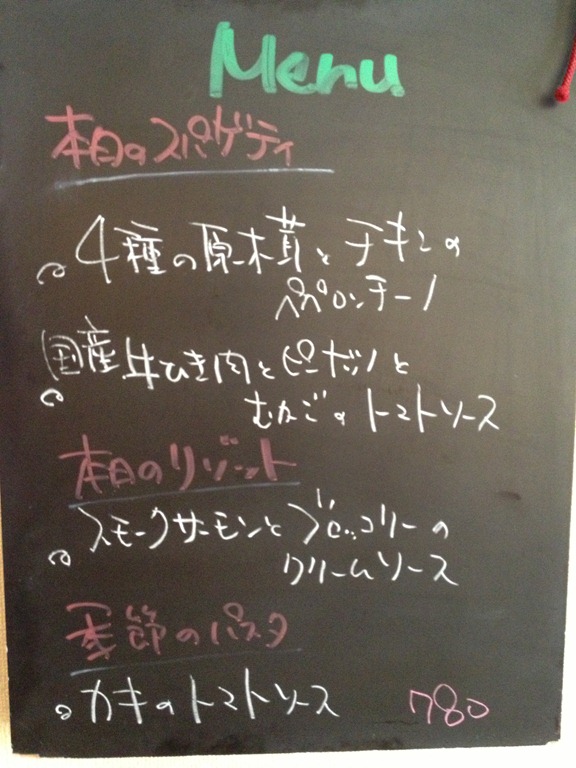 Menu
本日のスパゲティ
4種の原木茸とチキンの
ペペロンチーノ
国産牛ひき肉と
むかごのトマトソース
本日のリゾット
スモークサーモンとブロッコリーの
クリームソース
季節のパスタ
カキのトマトソース 780